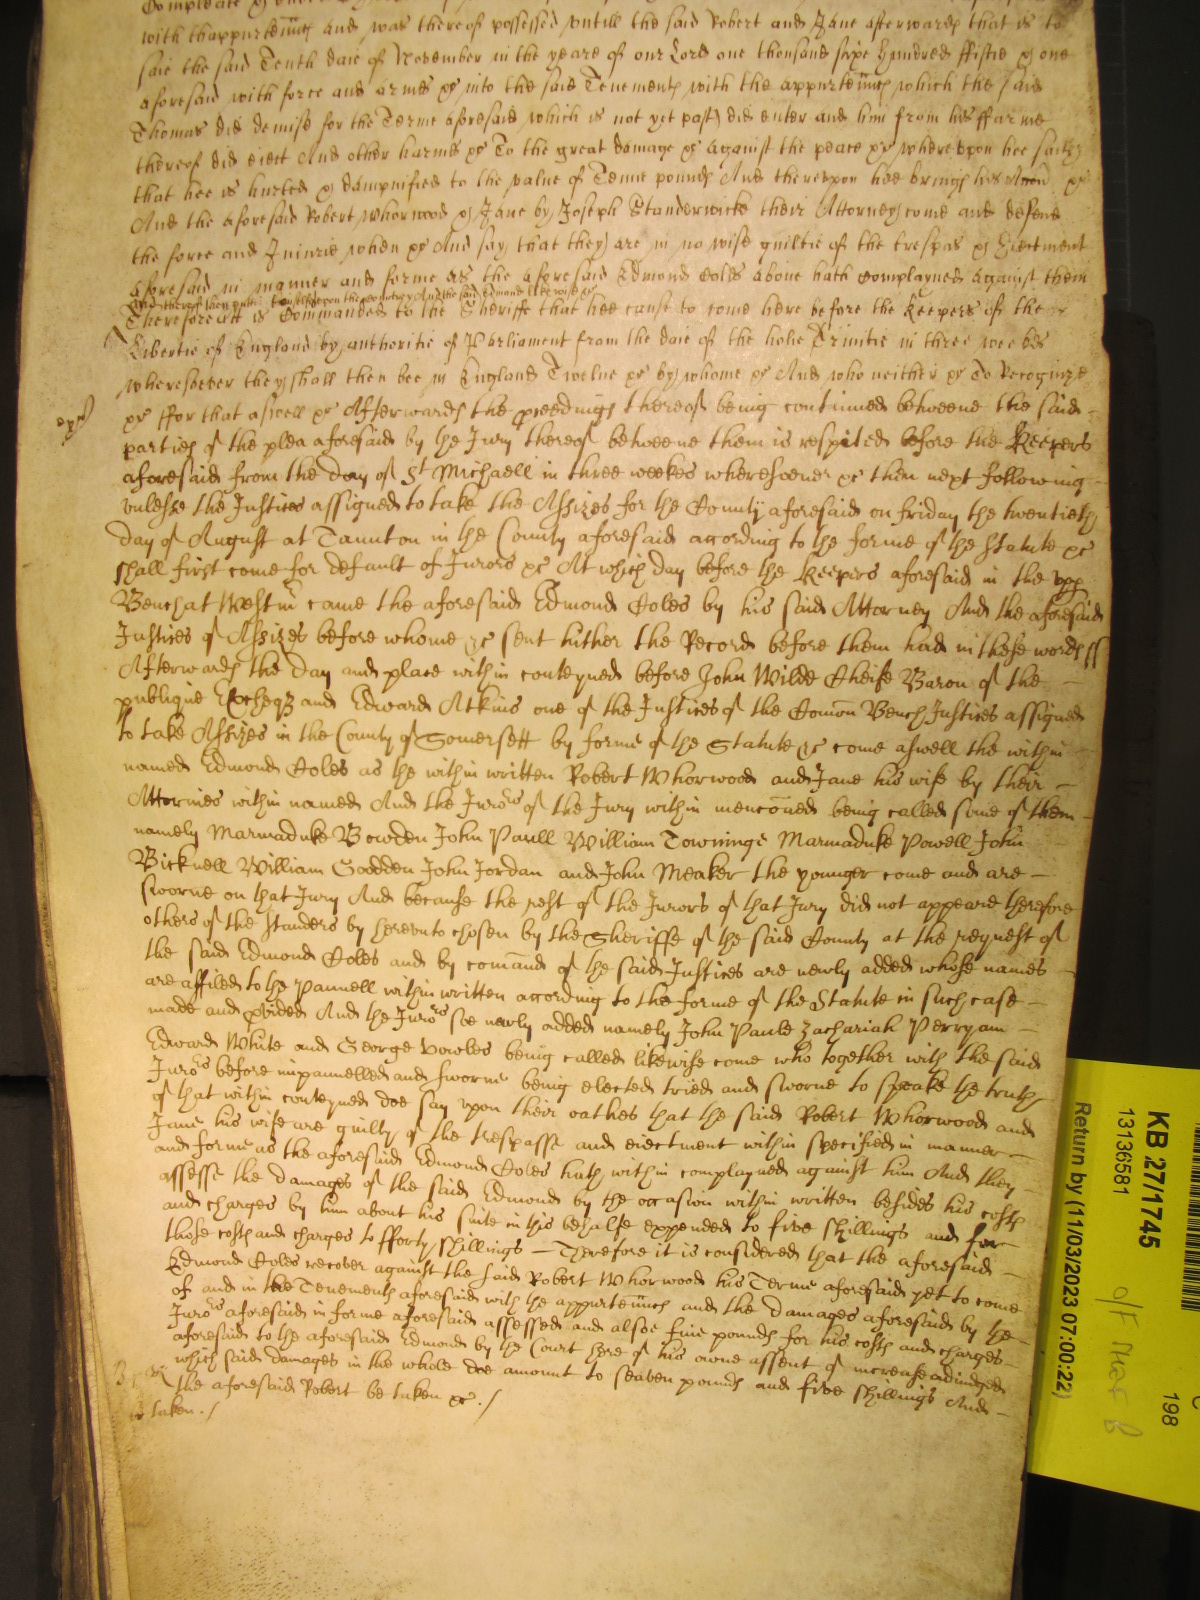 with thappurteñncs and was thereof possessed vntill the said Robert and Jane afterwards that is to
saie the said Tenth daie of November in the yeare of our Lord one thousand sixe hundred fiftie & one
aforesaid with force and armes &c into the said Tenements with the appurteñncs which the said
Thomas did demise for the Terme aforesaid which is not yet past did enter and him from his ffarme
thereof did eiect And other harmes &c To the great damage &c against the peace &c wherevpon hee saith
that hee is hurted & dampnified to the value of Tenne pounds And therevpon hee brings his &c
And the aforesaid Robert Whorwood & Jane by Joseph Standerwicke their Attorney come and defend
the force and Iniurie when &c And say that they are in no wise guiltie of the trespas & Eiectment
aforesaid in manner and forme as the aforesaid Edmond Coles above hath Complayned against them
And thereof they putt themselves vpon the Country And the said Edmond likewise &c
Therefore it is Commanded to the Sheriffe that hee cause to come here before the Keepers of the
Libertie of England by authoritie of Parliament from the daie of the holie Trinitie in three weekes
wheresoever they shall then bee in England Twelue &c by whome &c And who neither &c To Recognize
&c ffor that aswell &c Afterwards the pceedings thereof being continued betweene the said
parties of the plea aforesaid by the Jury thereof betweene them is respited before the Keepers
aforesaid from the day of St Michaell in three weekes wheresoever &c then next following
vnlesse the Justices assigned to take the Assizes for the County aforesaid on friday the twentieth
day of August at Taunton in the County aforesaid according to the forme of the Statute &c
shall first come for default of Jurors &c At which day before the Keepers aforesaid in the vpp
Bench at Westm̃ came the aforesaid Edmond Coles by his said Attorney And the aforesaid
Justices of Assizes before whome &c sent hither the Record before them had in these words ss
Afterwards the day and place within conteyned before John Wilde Cheife Baron of the
publique Excheqr and Edward Atkins one of the Justices of the Comõn Bench Justices assigned
to take Assizes in the County of Somersett by forme of the Statute &c come aswell the within
named Edmond Coles as the within written Robert Whorwood and Jane his wife by their
Attornies within named And the Jurors of the Jury within mencõned being called some of them
namely Marmaduke Bowden John Paull William Towninge Marmaduke Powell John
Bicknell William Goodden John Jordan and John Meaker the younger come and are
sworne on that Jury And because the rest of the Jurors of that Jury did not appeare therefore
others of the standers by herevnto chosen by the Sheriffe of the said County at the request of
the said Edmond Coles and by comãnd of the said Justices are newly added whose names
are affiled to the pannell within written according to the forme of the Statute in such case
made and pvided And the Jurors soe newly added namely John Paule Zachariah Perryam
Edward White and George Vowles being called likewise come who together with the said
Jurors before impannelled and sworne being elected tried and sworne to speake the truth
of that within conteyned doe say vpon their oathes that the said Robert Whorwood and
Jane his wife are guilty of the trespasse and eiectment within specified in manner
and forme as the aforesaid Edmond Coles hath within complayned against him And they
assesse the damages of the said Edmond by the occasion within written besides his costs
and charges by him about his suite in this behalfe expended to five shillings and for
those costs and charges to fforty shillings Therefore it is considered that the aforesaid
Edmond Coles recover against the said Robert Whorwood his Terme aforesaid yet to come
of and in the Tenements aforesaid with the appurteñncs and the damages aforesaid by the
Jurors aforesaid in forme aforesaid assessed and alsoe five pounds for his costs and charges
aforesaid to the aforesaid Edmond by the Court here of his owne assent of increase adiudged
which said damages in the whole doe amount to seaven pounds and five shillings And
the aforesaid Robert be taken &c./
taken./
KB 27/1745
13136581
Return by (11/03/2023 07:00:22)
198